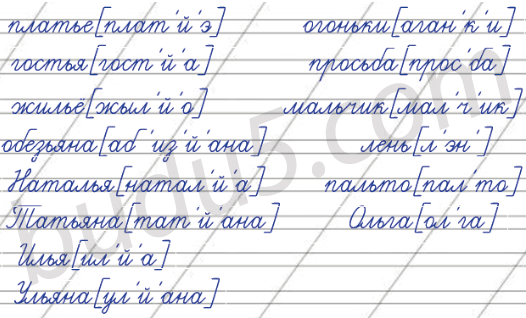 платье[плат'й'э] огоньки[аган'к'и]
гостья[гост'й'а] просьба[прос'ба]
жильё[жыл'й'о] мальчик[мал'ч'ик]
обезьяна[аб'из'й'ана] лень[л'эн']
Наталья[натал'й'а] пальто[пал'то]
Татьяна[тат'й'ана] Ольга[ол'га]
Илья[ил'й'а]
Ульяна[ул'й'ана]
budu5.com